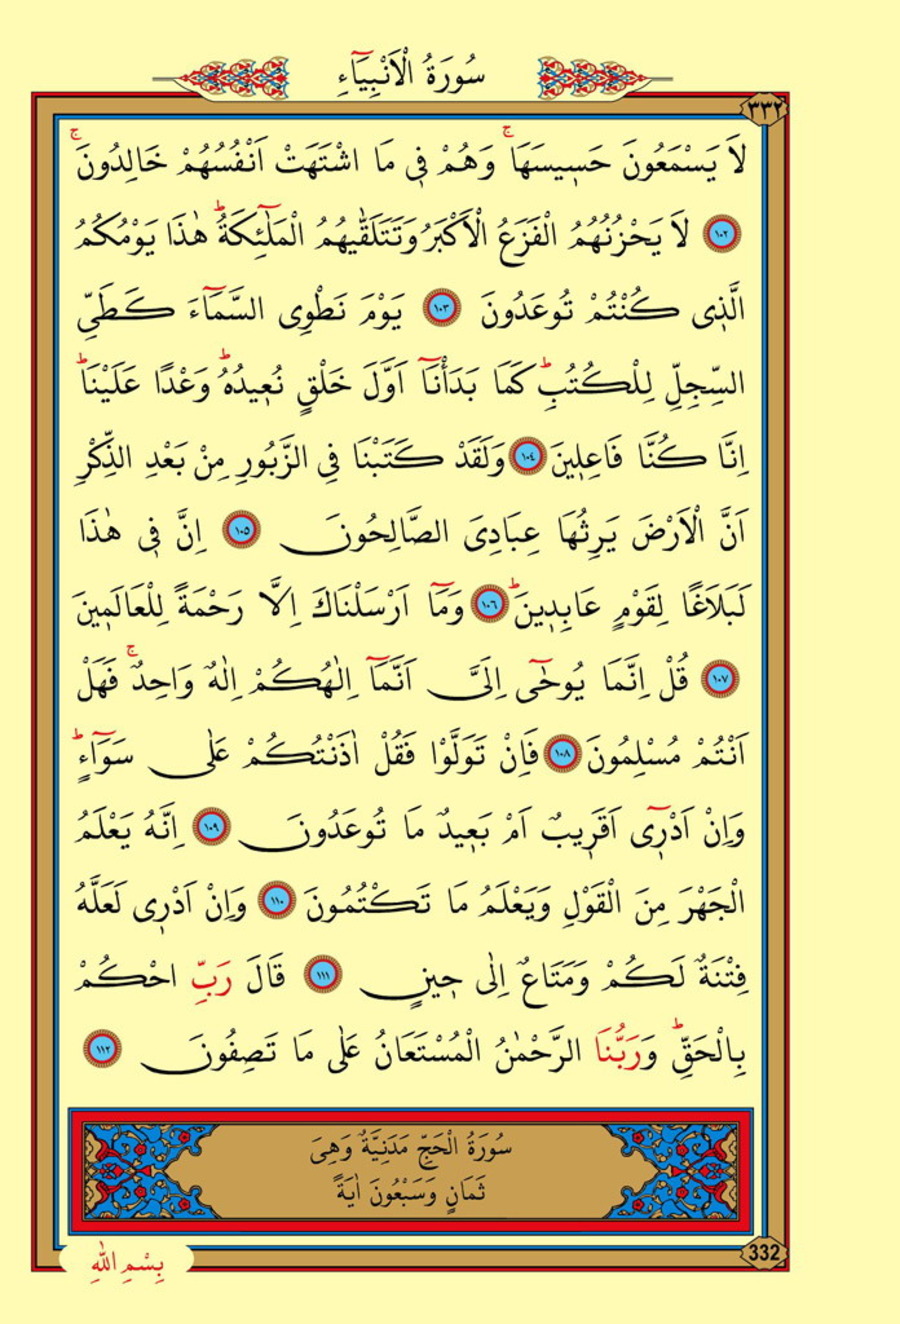 سُورَةُ الْاَنْبِيَٓاءِ
٣٣٢
لَا يَسْمَعُونَ حَسٖيسَهَاۚ وَهُمْ فٖي مَا اشْتَهَتْ اَنْفُسُهُمْ خَالِدُونَۚ
١٠٢ لَا يَحْزُنُهُمُ الْفَزَعُ الْاَكْبَرُ وَتَتَلَقّٰيهُمُ الْمَلٰٓئِكَةُؕ هٰذَا يَوْمُكُمُ
الَّذٖي كُنْتُمْ تُوعَدُونَ ١٠٣ يَوْمَ نَطْوِي السَّمَٓاءَ كَطَيِّ
السِّجِلِّ لِلْكُتُبِؕ كَمَا بَدَأْنَٓا اَوَّلَ خَلْقٍ نُعٖيدُهُؕ وَعْدًا عَلَيْنَاؕ
اِنَّا كُنَّا فَاعِلٖينَ ١٠٤ وَلَقَدْ كَتَبْنَا فِي الزَّبُورِ مِنْ بَعْدِ الذِّكْرِ
اَنَّ الْاَرْضَ يَرِثُهَا عِبَادِيَ الصَّالِحُونَ ١٠٥ اِنَّ فٖي هٰذَا
لَبَلَاغًا لِقَوْمٍ عَابِدٖينَؕ ١٠٦ وَمَٓا اَرْسَلْنَاكَ اِلَّا رَحْمَةً لِلْعَالَمٖينَ
١٠٧ قُلْ اِنَّمَا يُوحٰٓى اِلَيَّ اَنَّمَٓا اِلٰهُكُمْ اِلٰهٌ وَاحِدٌۚ فَهَلْ
اَنْتُمْ مُسْلِمُونَ ١٠٨ فَاِنْ تَوَلَّوْا فَقُلْ اٰذَنْتُكُمْ عَلٰى سَوَٓاءٍؕ
وَاِنْ اَدْرٖٓي اَقَرٖيبٌ اَمْ بَعٖيدٌ مَا تُوعَدُونَ ١٠٩ اِنَّهُ يَعْلَمُ
الْجَهْرَ مِنَ الْقَوْلِ وَيَعْلَمُ مَا تَكْتُمُونَ ١١٠ وَاِنْ اَدْرٖي لَعَلَّهُ
فِتْنَةٌ لَكُمْ وَمَتَاعٌ اِلٰى حٖينٍ ١١١ قَالَ رَبِّ احْكُمْ
بِالْحَقِّؕ وَرَبُّنَا الرَّحْمٰنُ الْمُسْتَعَانُ عَلٰى مَا تَصِفُونَ ١١٢
سُورَةُ الْحَجِّ مَدَنِيَّةٌ وَهِيَ
ثَمَانٍ وَسَبْعُونَ اٰيَةً
332
بِسْمِ اللّٰهِ